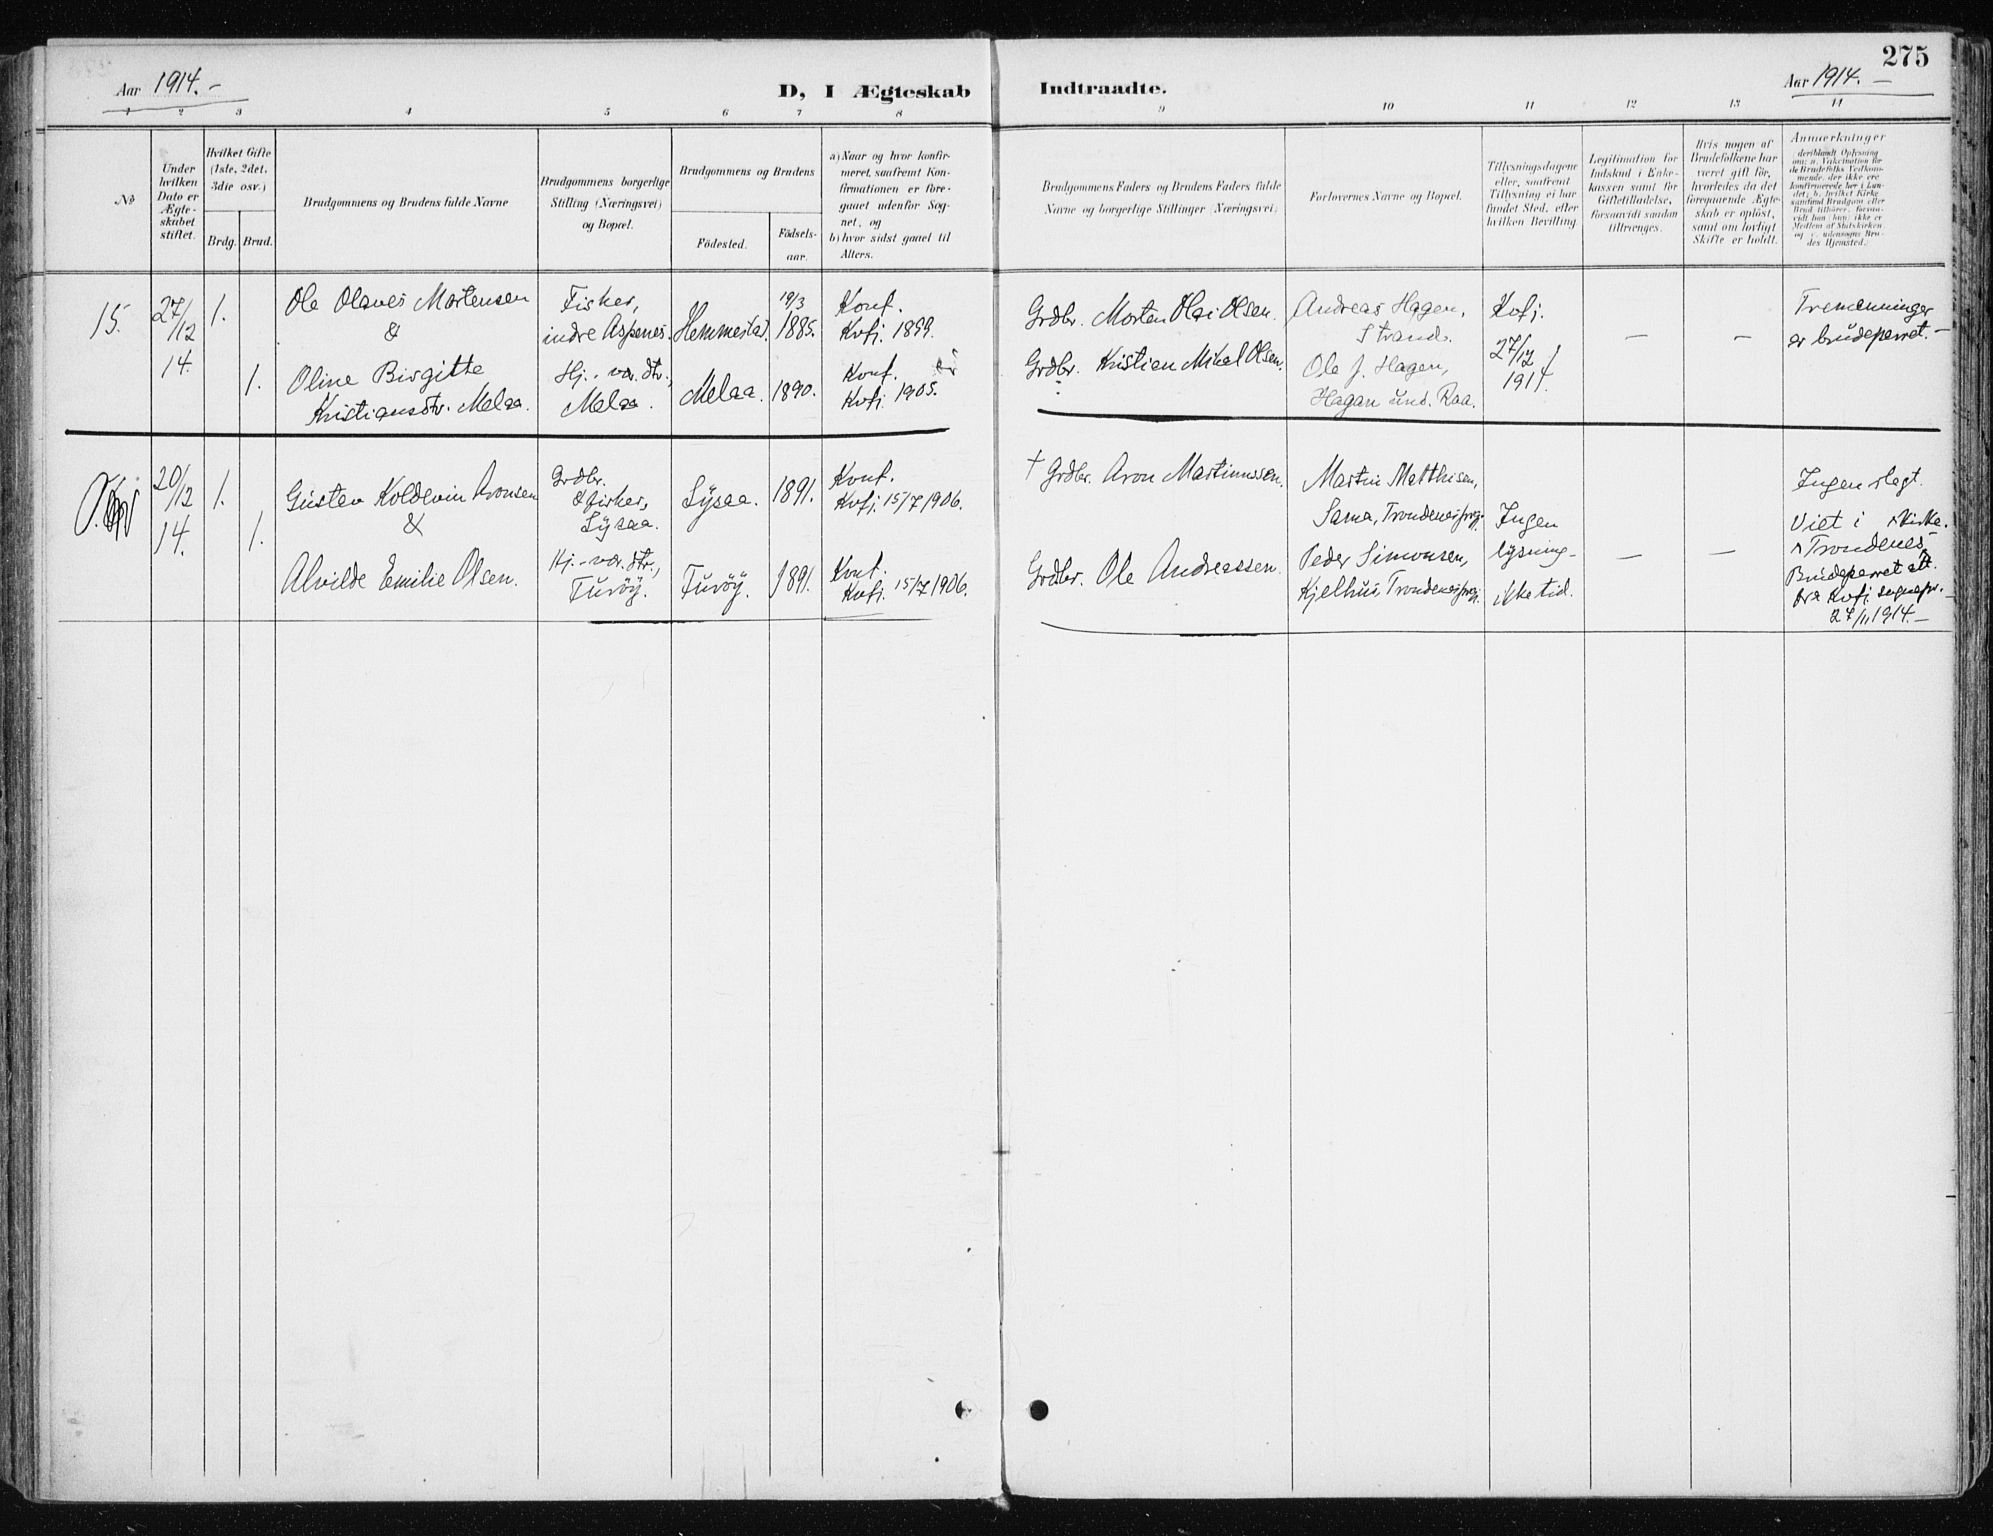 275
Aar 1914.-
D, I Ægteskab Indtraadte.
Aar 1914.-
1 2 3 4 5 6 7 8 9 10 11 12 13 14
No
Under hvilken Dato er Ægteskabet stiftet.
Hvilket Gifte (1ste, 2det, 3die osv.)
Brdg. Brud.
Brudgommens og Brudens fulde Navne
Brudgommens borgerlige Stilling (Næringsvei) og Bopæl.
Brudgommens og Brudens
Födested.
Födsels-aar.
a) Naar og hvor konfirmeret, saafremt Konfirmationen er foregaaet udenfor Sognet, og
b) hvor sidst gaaet til Alters.
Brudgommens Faders og Brudens Faders fulde Navne og borgerlige Stillinger (Næringsvei)
Forlovernes Navne og Bopæl.
Tillysningsdagene eller, saafremt Tillysning ei har fundet Sted, efter hvilken Bevilling
Legitimation for Indskud i Enkekassen samt for Giftetilladelse, forsaavidt saadan tiltrænges.
Hvis nogen af Brudefolkene har været gift för, hvorledes da det foregaaende Ægteskab er oplöst, samt om lovligt Skifte er holdt.
Anmærkninger
deriblandt Oplysning om: a. Vakcination for de Brudefolks Vedkommende, der ikke ere konfirmerede her i Landet; b. hvilket Kirkesamfund Brudgom eller Brud tilhører, forsaavidt han (hun) ikke er Medlem af Statskirken, og c. udensogns Brudes Hjemsted.
15.
27/12 14.
1.
Ole Olaves Mortensen
&
Fisker,
indre Aspenes.
Hemmestad.
19/3
1885.
Konf.
Kvfj. 1899.
Grdbr. Morten Olai Olsen.
Andreas Hagen,
Strand.
Kvfj.
27/12
1914.
–
–
Tremenninger
er brudeparret.-
1.
Oline Birgitte
Kristiansdtr. Melaa.
Hj.-vær. dtr.,
Melaa.
Melaa.
1890.
Konf.
Kvfj. 1905.
Grdbr. Kristian Mikal Olsen.
Ole J. Hagen,
Hagan und. Raa.
20/12
14.
1.
Gustav Koldevin Aronsen
&
Grdbr.
& fisker,
Lysaa.
Lysaa.
1891.
Konf.
Kvfj. 15/7 1906.
† Grdbr. Aron Martinussen.
Martin Matthisen,
Sama, Trondenes prgj.
Ingen
lysning-
ikke tid.
–
–
Ingen slegt.
Viet i kirke.
Trondenes
Brudeparret att.
fra Kvfj. sognepr.
27/11 1914.-
1.
Alvilde Emilie Olsen.
Hj.-vær. dtr.,
Furöy.
Furöy.
1891.
Konf.
Kvfj. 15/7 1906.
Grdbr. Ole Andreassen.
Peder Simonsen,
Kjelhus, Trondenes prgj.